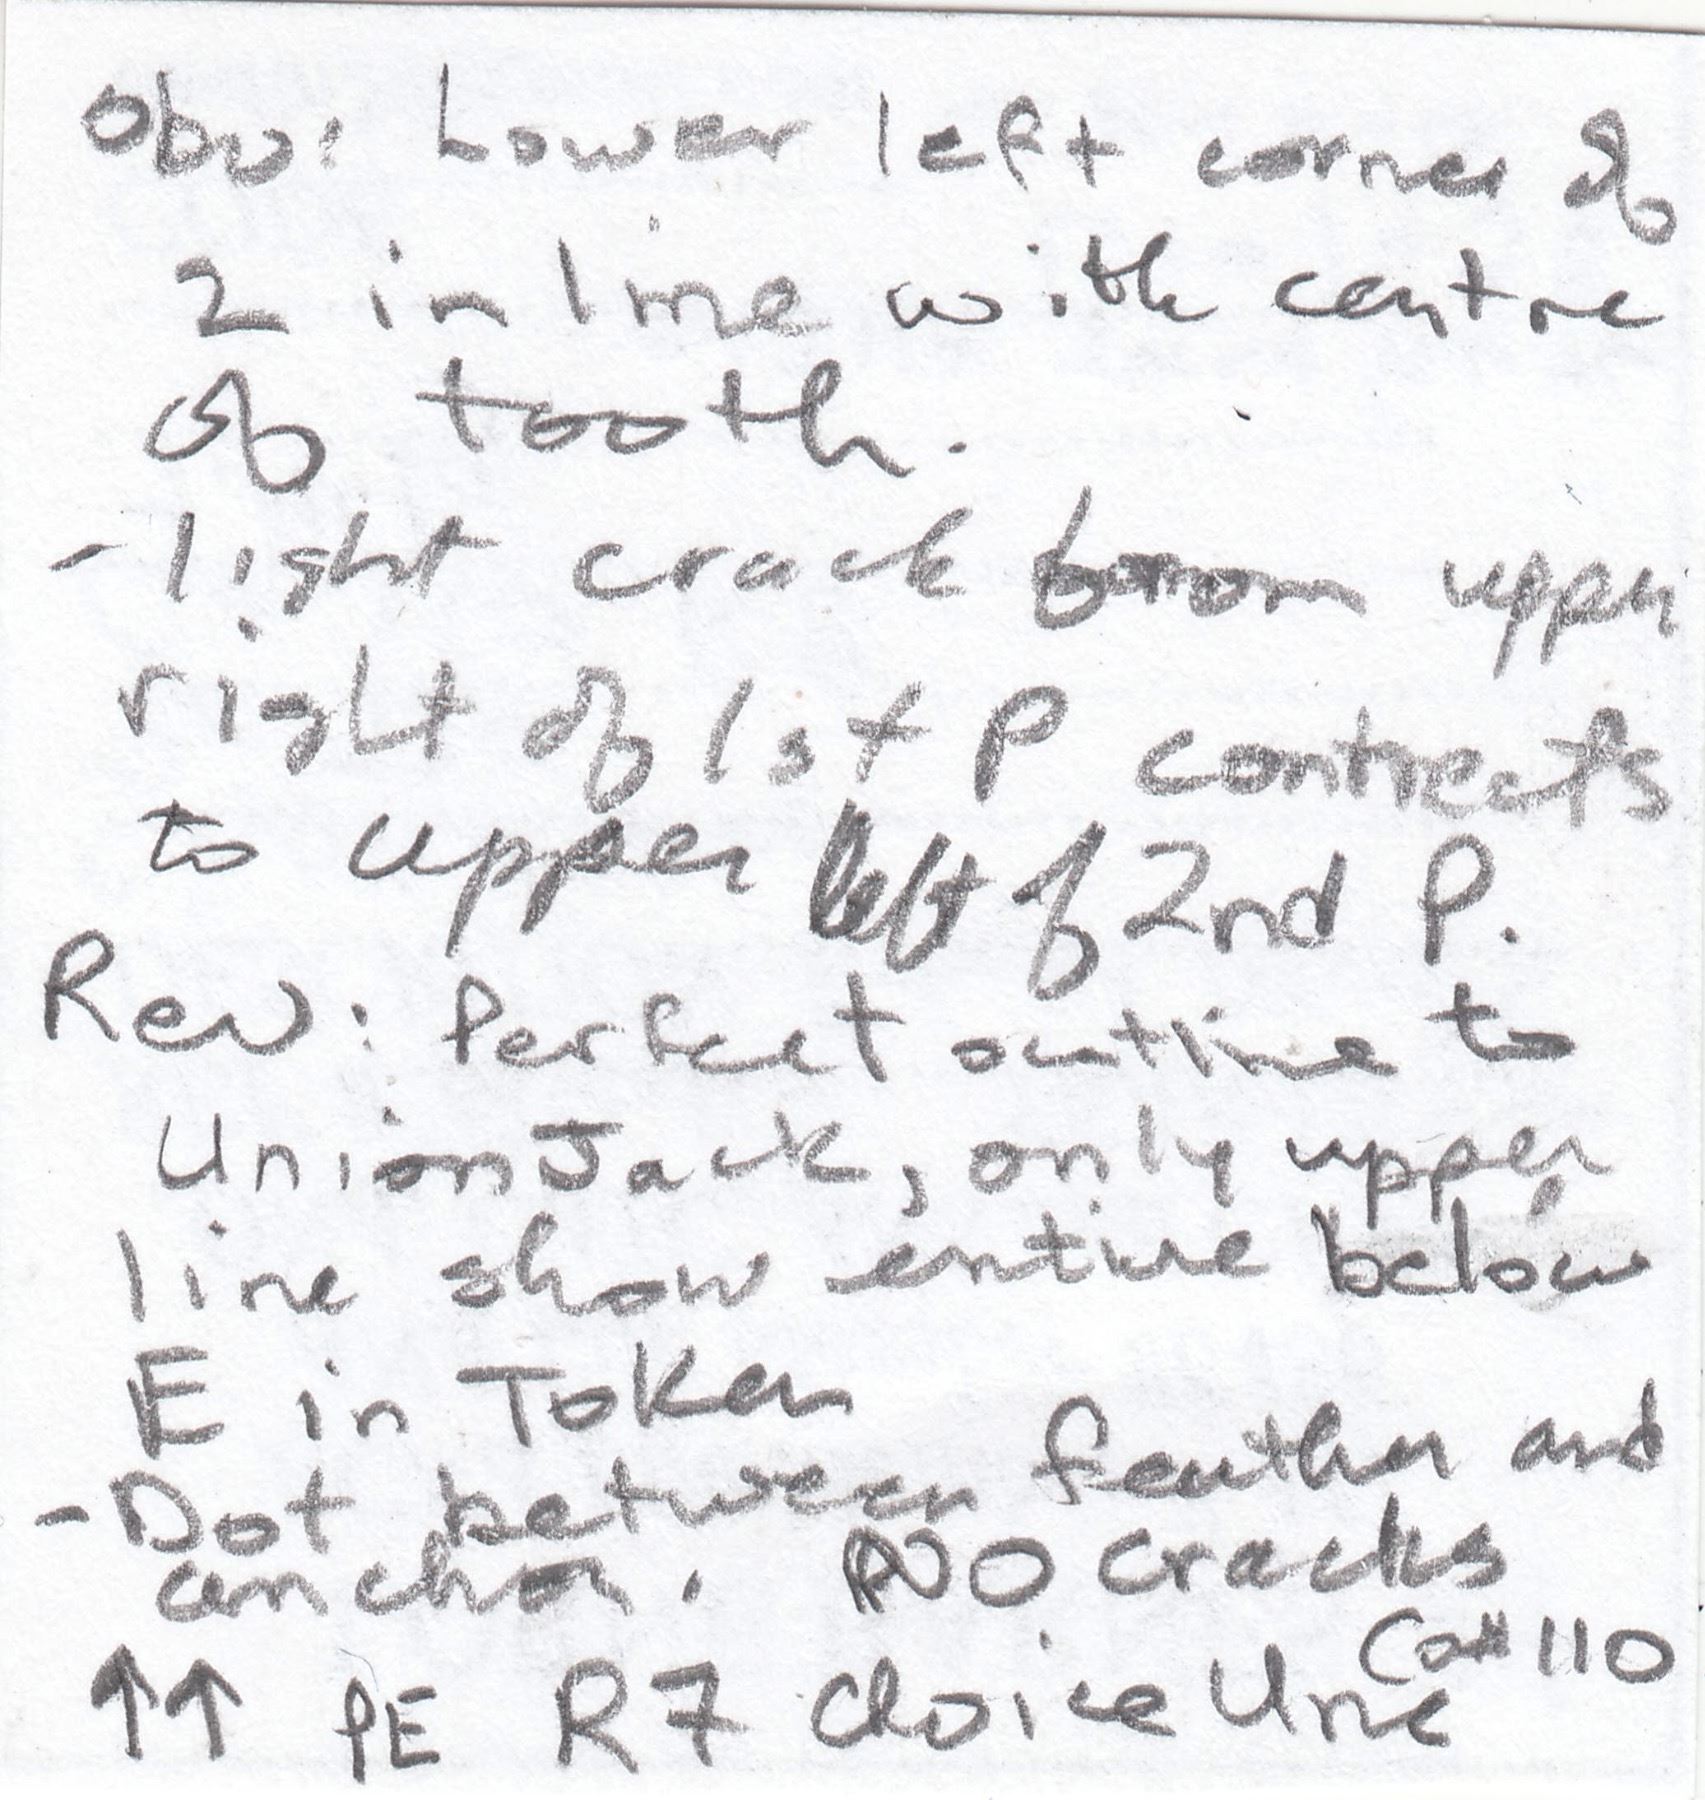 Obv: Lower left corner of
2 in line with centre
of tooth.
- light crack from upper
right of 1st P contrects
to upper left of 2nd P.
Rev: Perfect outline to
Union Jack, only upper
line show entire below
E in Token
- Dot between feather and
anchor. NO cracks
Co# 110
↑↑ PE R7 Choice Unc